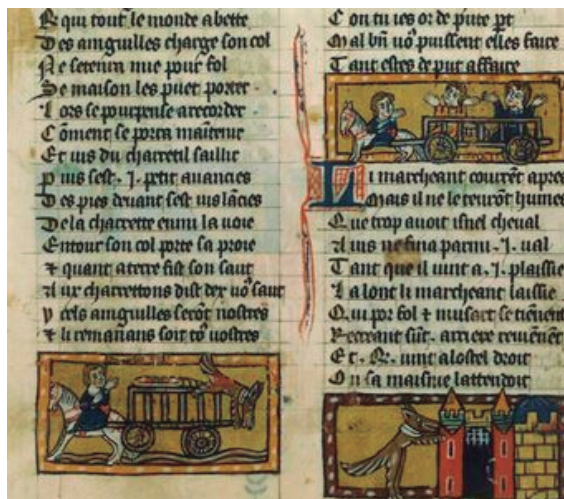 R qui tout le monde abette
Des anguilles charge son col
Ne setenra mie pour fol
Se maison les puet porter
Lors se pourpense a recorder
Coment se portra maitenir
Et uis du charretil saillir
puis sest .I. petit auancies
Des pies deuant sest uis lancies
De la charrette enmi la uoie
Entour son col porte sa proie
& quant a terre fist son saut
Aux charrettons dist der uo saut
y cels anguilles serot nostres
& li remanans soit to uostres
Con tu ies or de pute
Mal bn uo puissent elles faire
Tant estes de put affaire
Li marcheant courent apres
Mais il ne le
Que trop auoit isnel cheual
Auis ne fina parmi .I. ual
Tant que il uint a .I. plaissie
La lont li marcheant laissie
Qui por fol & musart se tienent
Recreant sut arriere reuienent
Et .R. uint a lostel droit
On sa maisnie lattendoit